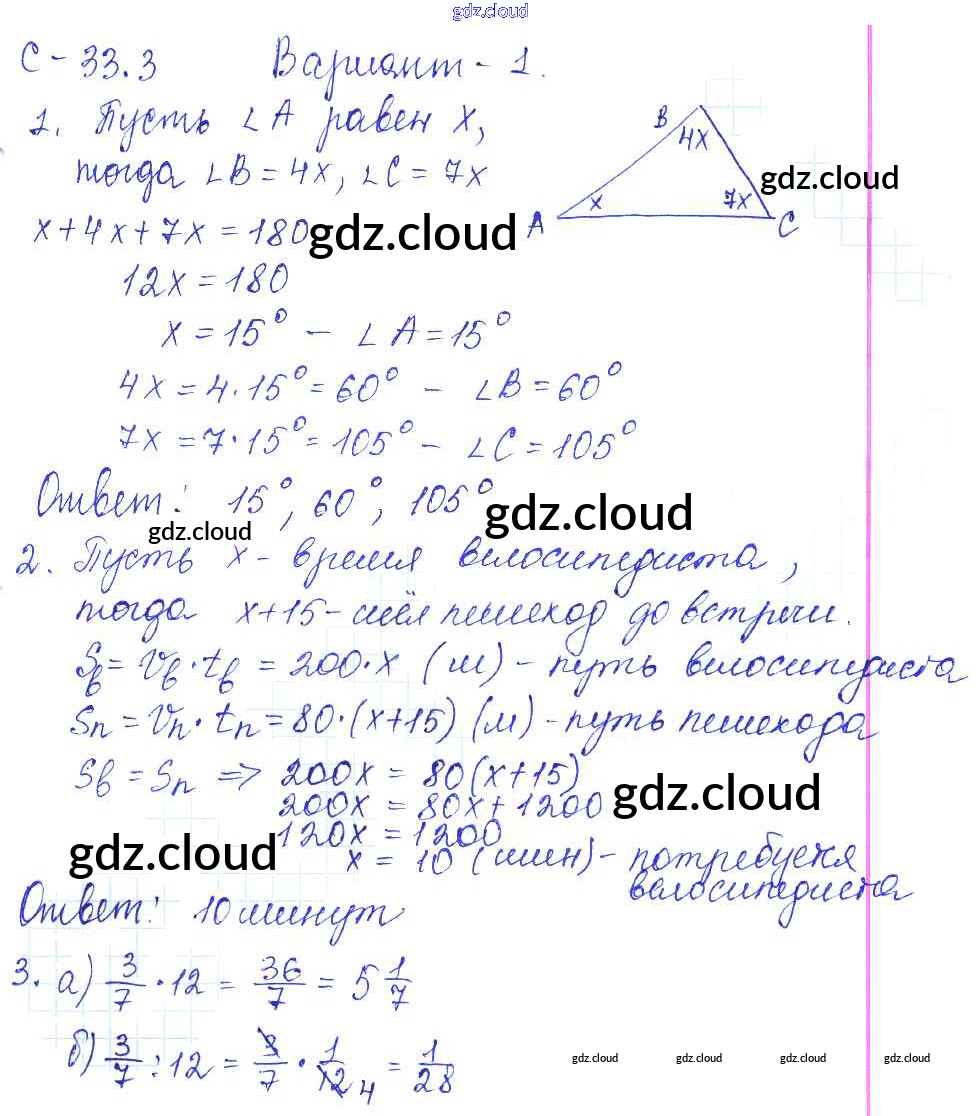 gdz.cloud
С - 33.3 Вариант - 1.
1. Пусть ∠A равен x,
тогда ∠B = 4x, ∠C = 7x
x + 4x + 7x = 180 gdz.cloud
B 4x
gdz.cloud
A x 7x C
12x = 180
x = 15° - ∠A = 15°
4x = 4·15° = 60° - ∠B = 60°
7x = 7·15° = 105° - ∠C = 105°
Ответ: 15°, 60°, 105° gdz.cloud
gdz.cloud
2. Пусть x - время велосипедиста,
тогда x+15 - шёл пешеход до встречи.
Sв = Vв·tв = 200·x (м) - путь велосипедиста
Sп = Vп·tп = 80·(x+15) (м) - путь пешехода
Sв = Sп => 200x = 80(x+15)
200x = 80x + 1200 gdz.cloud
120x = 1200
gdz.cloud x = 10 (мин) - потребуется
велосипедиста
Ответ: 10 минут
3. а) 3/7 · 12 = 36/7 = 5 1/7
б) 3/7 : 12 = 3/7 · 1/12 4 = 1/28
gdz.cloud gdz.cloud gdz.cloud gdz.cloud